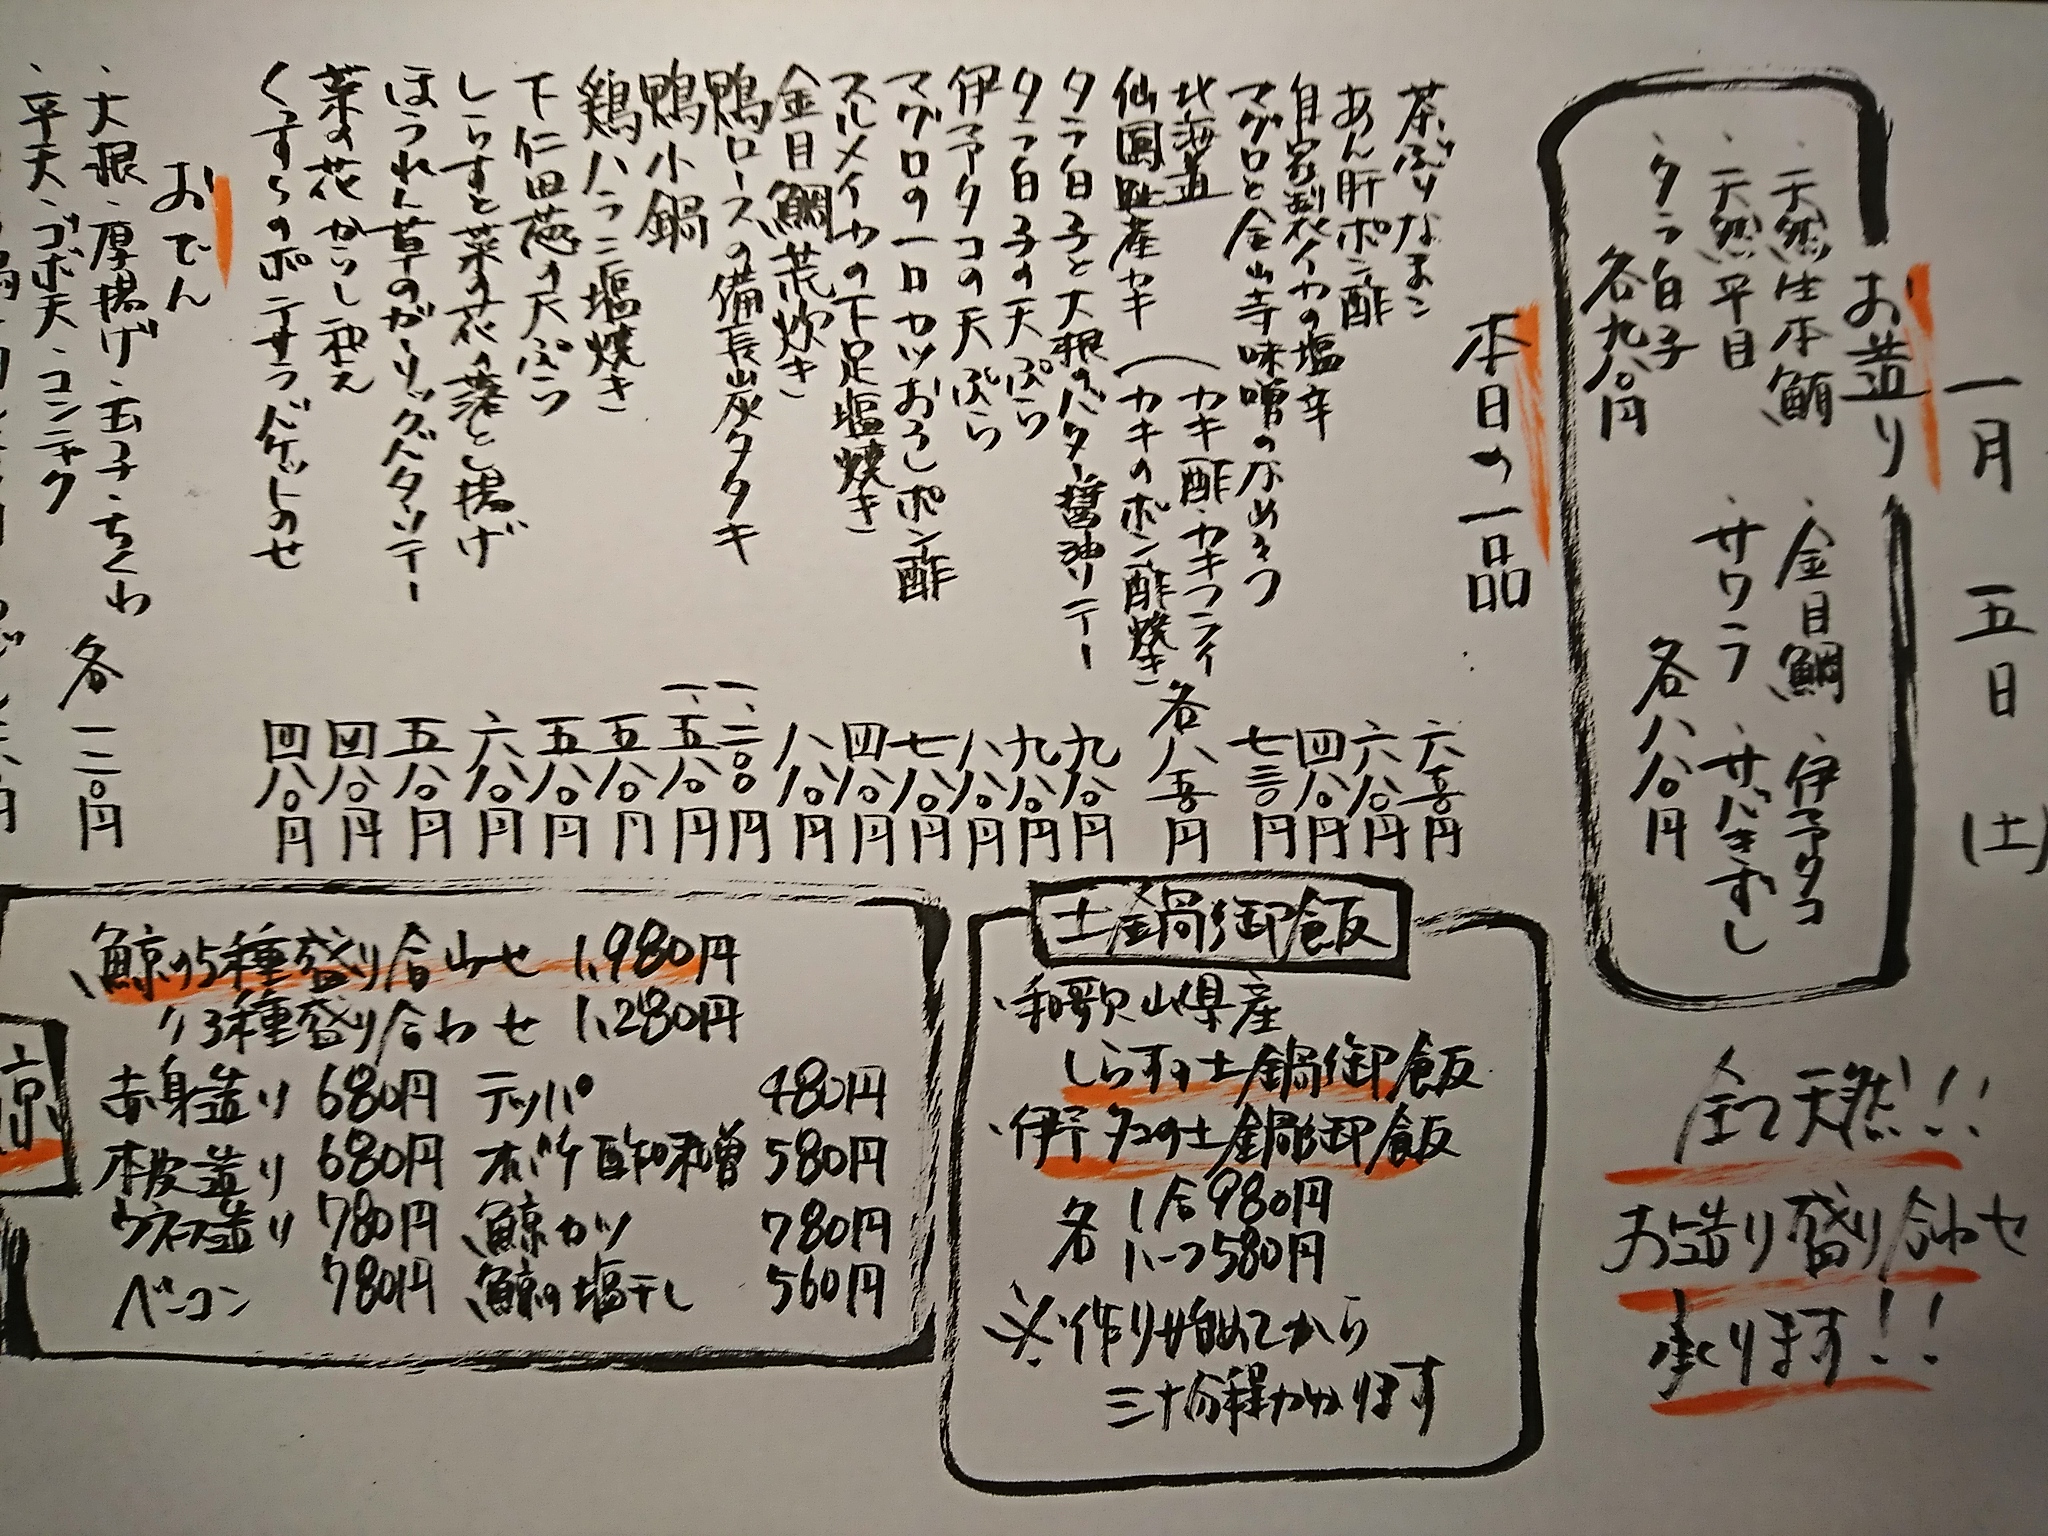 一月 五日 (土)
お造り
・天然生本鮪
・天然平目
・タラ白子
各九八〇円
・金目鯛・伊予タコ
・サワラ・サバきずし
各八八〇円
全て天然!!
お造り盛り合わせ
承ります!!
本日の一品
茶ぶりなまこ 六五〇円
あん肝ポン酢 六八〇円
自家製イカの塩辛 四八〇円
マグロと金山寺味噌のなめろう 七三〇円
北海道 (カキ酢・カキフライ
仙鳳趾産カキ (カキのポン酢焼き 各八五〇円
タラ白子と大根のバター醤油ソテー 九八〇円
タラ白子の天ぷら 九八〇円
伊予タコの天ぷら 八八〇円
マグロの一口カツおろしポン酢 七八〇円
スルメイカの下足塩焼き 四八〇円
金目鯛荒炊き 八八〇円
鴨ロースの備長炭タタキ 一、二〇〇円
鴨小鍋 一、五八〇円
鶏ハラミ塩焼き 五八〇円
下仁田葱の天ぷら 五八〇円
しらすと菜の花の落とし揚げ 六八〇円
ほうれん草のガーリックバターソテー 五八〇円
菜の花からし和え 四八〇円
くずらのポテサラバケットのせ 四八〇円
おでん
・大根・厚揚げ・玉子・ちくわ
・平天・ゴボ天・コンニャク 各一二〇円
土鍋御飯
・和歌山県産
しらすの土鍋御飯
・伊予タコの土鍋御飯
各 1合980円
ハーフ580円
※・作り始めてから
三十分程かかります
鯨の5種盛り合わせ 1,980円
〃3種盛り合わせ 1,280円
赤身造り 680円 テッパ 480円
本皮造り 680円 オバケ酢味噌 580円
ウネス造り 780円 鯨カツ 780円
ベーコン 780円 鯨の塩干し 560円